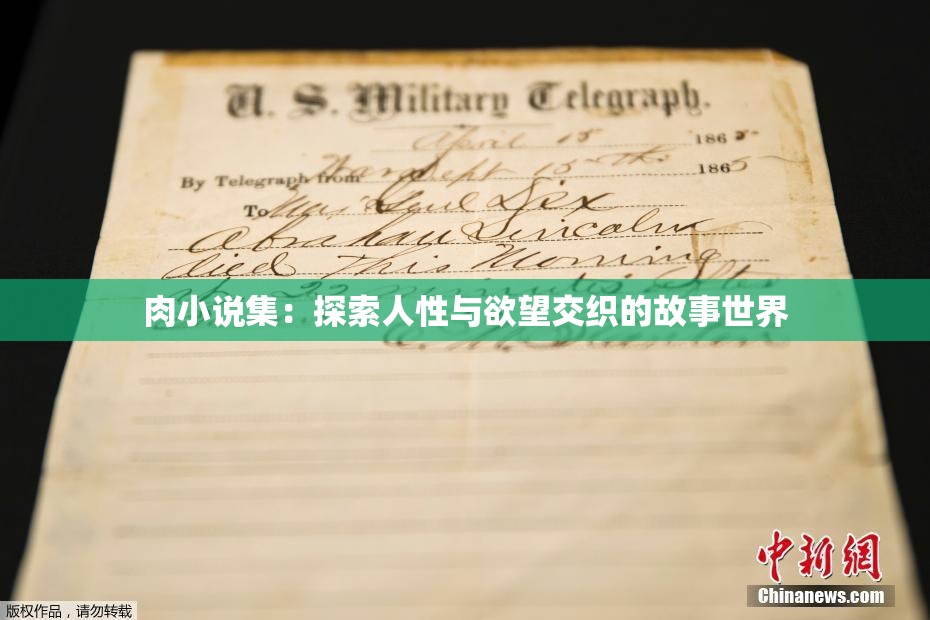 U. S. Military Telegraph.
April 15 1865
By Telegraph from War Dept 15th 1865
To Maj Genl Dix
Abraham Lincoln
died This Morning
22 minutes after
肉小说集：探索人性与欲望交织的故事世界
中新網
Chinanews.com
版权作品，请勿转载